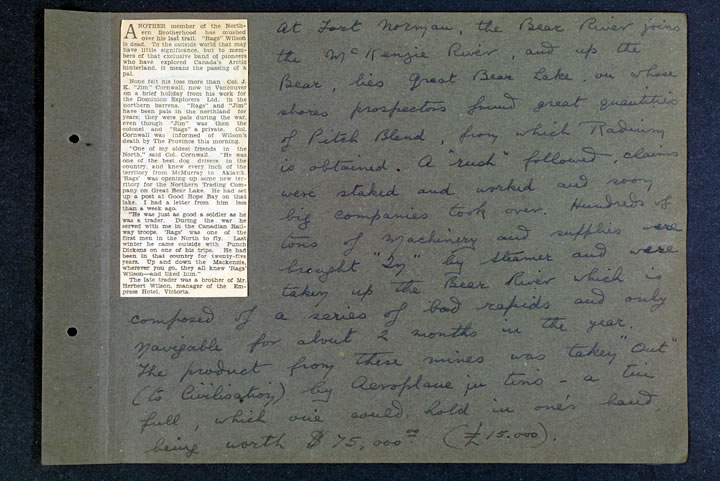 ANOTHER member of the North-
ern Brotherhood has mushed
over his last trail. "Rags" Wilson
is dead. To the outside world that may
have little significance, but to mem-
bers of that exclusive band of pioneers
who have explored Canada's Arctic
hinterland, it means the passing of a
pal.
None felt his loss more than Col. J.
K. "Jim" Cornwall, now in Vancouver
on a brief holiday from his work for
the Dominion Explorers Ltd. in the
northern barrens. "Rags" and "Jim"
have been pals in the northland for
years; they were pals during the war,
even though "Jim" was then the
colonel and "Rags" a private. Col.
Cornwall was informed of Wilson's
death by The Province this morning.
"One of my oldest friends in the
North," said Col. Cornwall. "He was
one of the best dog drivers in the
country, and knew every inch of the
territory from McMurray to Aklavik.
'Rags' was opening up some new ter-
ritory for the Northern Trading Com-
pany on Great Bear Lake. He had set
up a post at Good Hope Bay on that
lake. I had a letter from him less
than a week ago.
"He was just as good a soldier as he
was a trader. During the war he
served with me in the Canadian Rail-
way troops. 'Rags' was one of the
first men in the North to fly. Last
winter he came outside with Punch
Dickens on one of his trips. He had
been in that country for twenty-five
years. Up and down the Mackenzie,
wherever you go, they all knew 'Rags'
Wilson—and liked him."
The late trader was a brother of Mr.
Herbert Wilson, manager of the Em-
press Hotel, Victoria.
At Fort Norman, the Bear River joins
the McKenzie River, and up the
Bear, lies Great Bear Lake, on whose
shores, prospectors found great quantities
of Pitch Blend, from which Radium
is obtained. A "rush" followed, claims
were staked and worked and soon
big companies took over. Hundreds of
tons of machinery and supplies were
brought "In" by steamer and were
taken up the Bear River which is
composed of a series of bad rapids and only
navigable for about 2 months in the year.
The product from these mines was taken "Out"
(to Civilisation) by Aeroplane in tins - a tin
full, which one could hold in one's hand,
being worth $75,000.00 (£15.000).